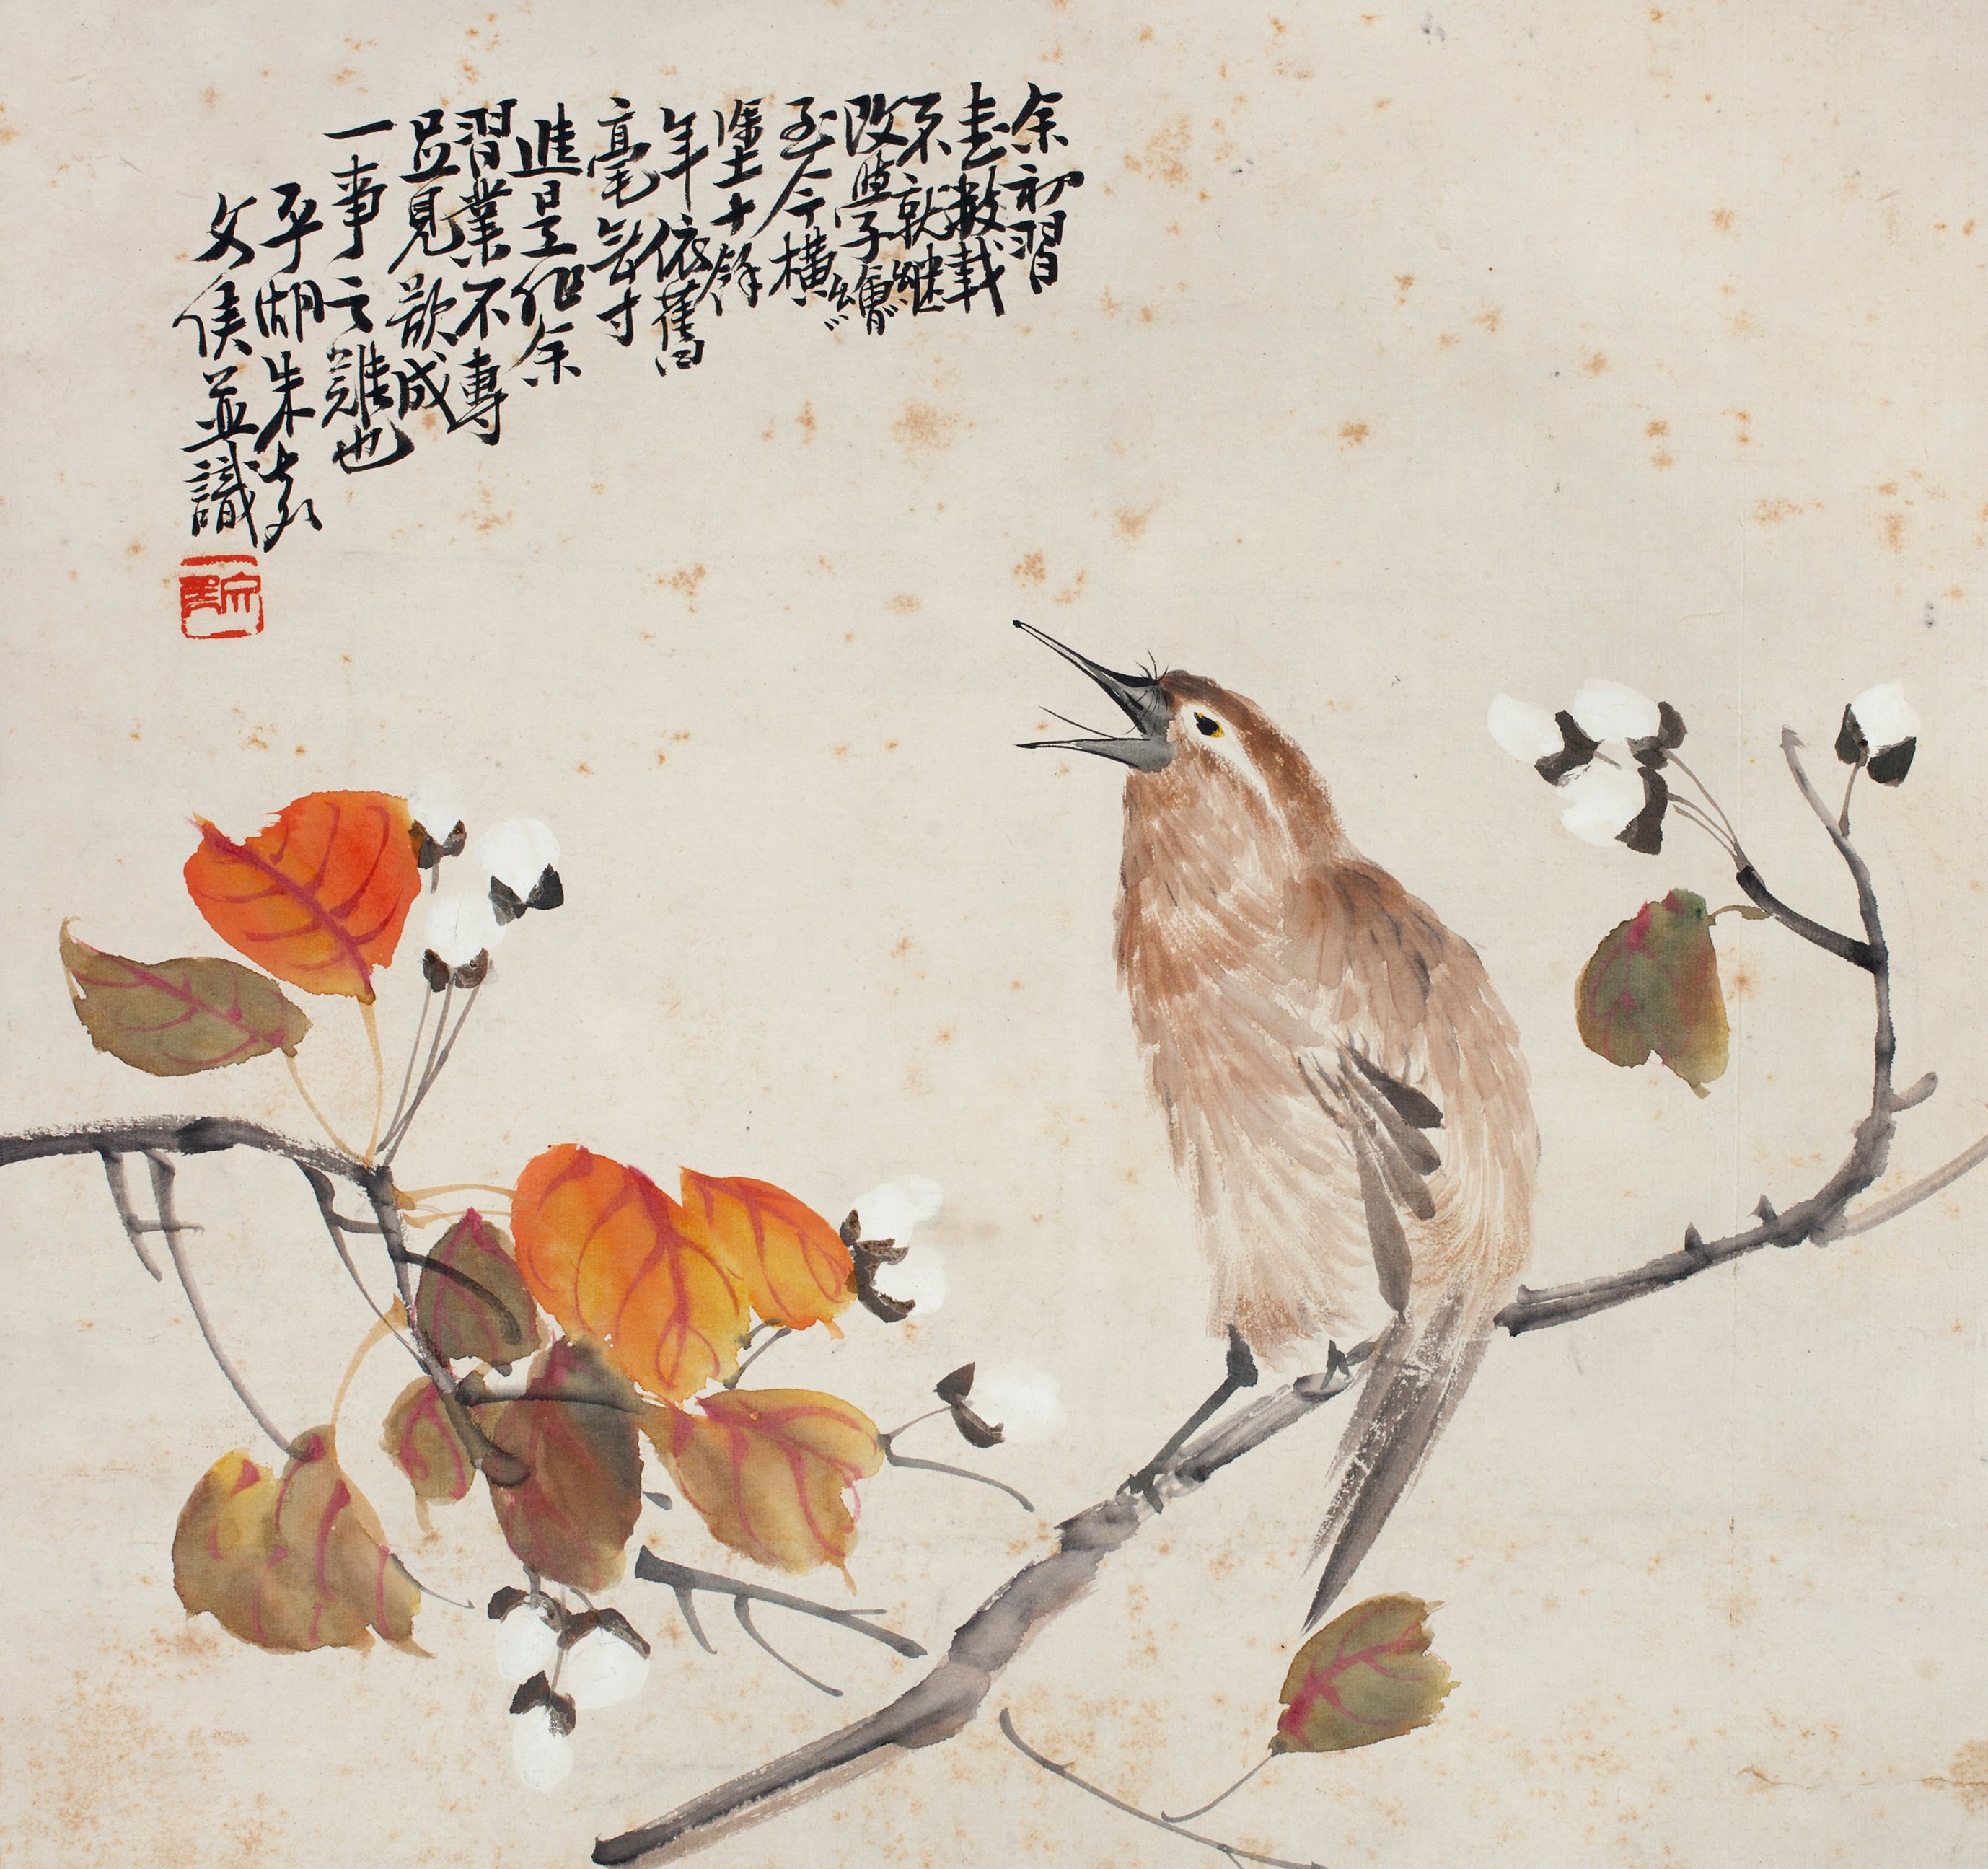 余初習
書數載
不就繼
改學繪
至今橫
塗十餘
年依舊
毫無寸
進是非余
習業不專
足見欲成
一事之難也
平湖朱袞
文侯並識